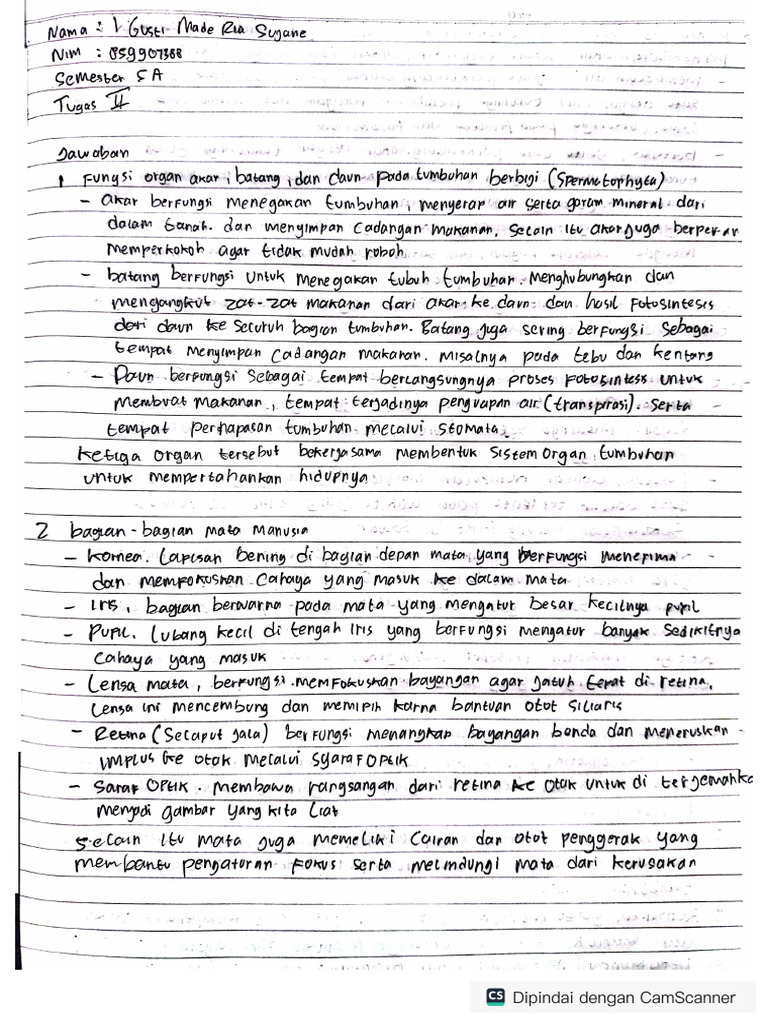 Nama : I Gusti Made Ria Sugane
Nim : 859907388
Semester 5A
Tugas II
Jawaban
1 Fungsi organ akar, batang, dan daun pada tumbuhan berbiji (Spermatophyta)
- akar berfungsi menegakan tumbuhan, menyerap air serta garam mineral dari
dalam tanah. dan menyimpan cadangan makanan, selain itu akar juga berperan
memperkokoh agar tidak mudah roboh
- batang berfungsi untuk menegakan tubuh tumbuhan. Menghubungkan dan
mengangkut zat-zat makanan dari akar ke daun dan hasil fotosintesis
dari daun ke seluruh bagian tumbuhan. Batang juga sering berfungsi sebagai
tempat menyimpan cadangan makanan. misalnya pada tebu dan kentang
- Daun berfungsi sebagai tempat berlangsungnya proses fotosintesis untuk
membuat makanan, tempat terjadinya penguapan air (transpirasi). serta
tempat perhapasan tumbuhan melalui stomata.
ketiga organ tersebut bekerjasama membentuk sistem organ tumbuhan
untuk mempertahankan hidupnya
2 bagian-bagian mata manusia
- kornea. Lapisan bening di bagian depan mata yang berfungsi menerima
dan memfokuskan cahaya yang masuk ke dalam mata
- Iris, bagian berwarna pada mata yang mengatur besar kecilnya pupil
- Pupil. Lubang kecil di tengah iris yang berfungsi mengatur banyak sedikitnya
cahaya yang masuk
- Lensa mata, berfungsi memfokuskan bayangan agar jatuh tepat di retina.
Lensa ini mencembung dan memipih karna bantuan otot siliaris
- Retina (Selaput jala) berfungsi menangkap bayangan benda dan meneruskan
implus ke otak melalui syaraf optik
- Saraf optik. membawa rangsangan dari retina ke otak untuk di terjemahka
menjadi gambar yang kita liat
selain itu mata juga memeliki cairan dan otot penggerak yang
membantu pengaturan fokus serta melindungi mata dari kerusakan
CS Dipindai dengan CamScanner